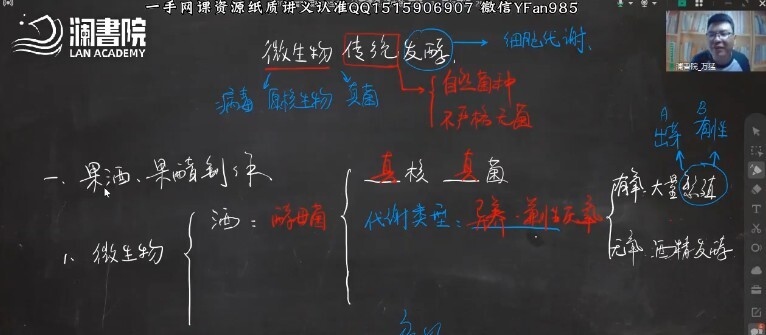 一手网课资源纸质讲义认准QQ1515906907 微信YFan985
瀾書院
LAN ACADEMY
微生物 传统 发酵 细胞代谢
病毒 原核生物 真菌
自然菌种
不严格无菌
澜書院_万猛
A B
出芽 有性
一、果酒、果醋制作
真核 真菌
1、微生物
酒：酵母菌
代谢类型：异养·兼性厌氧
有氧 大量繁殖
无氧 酒精发酵